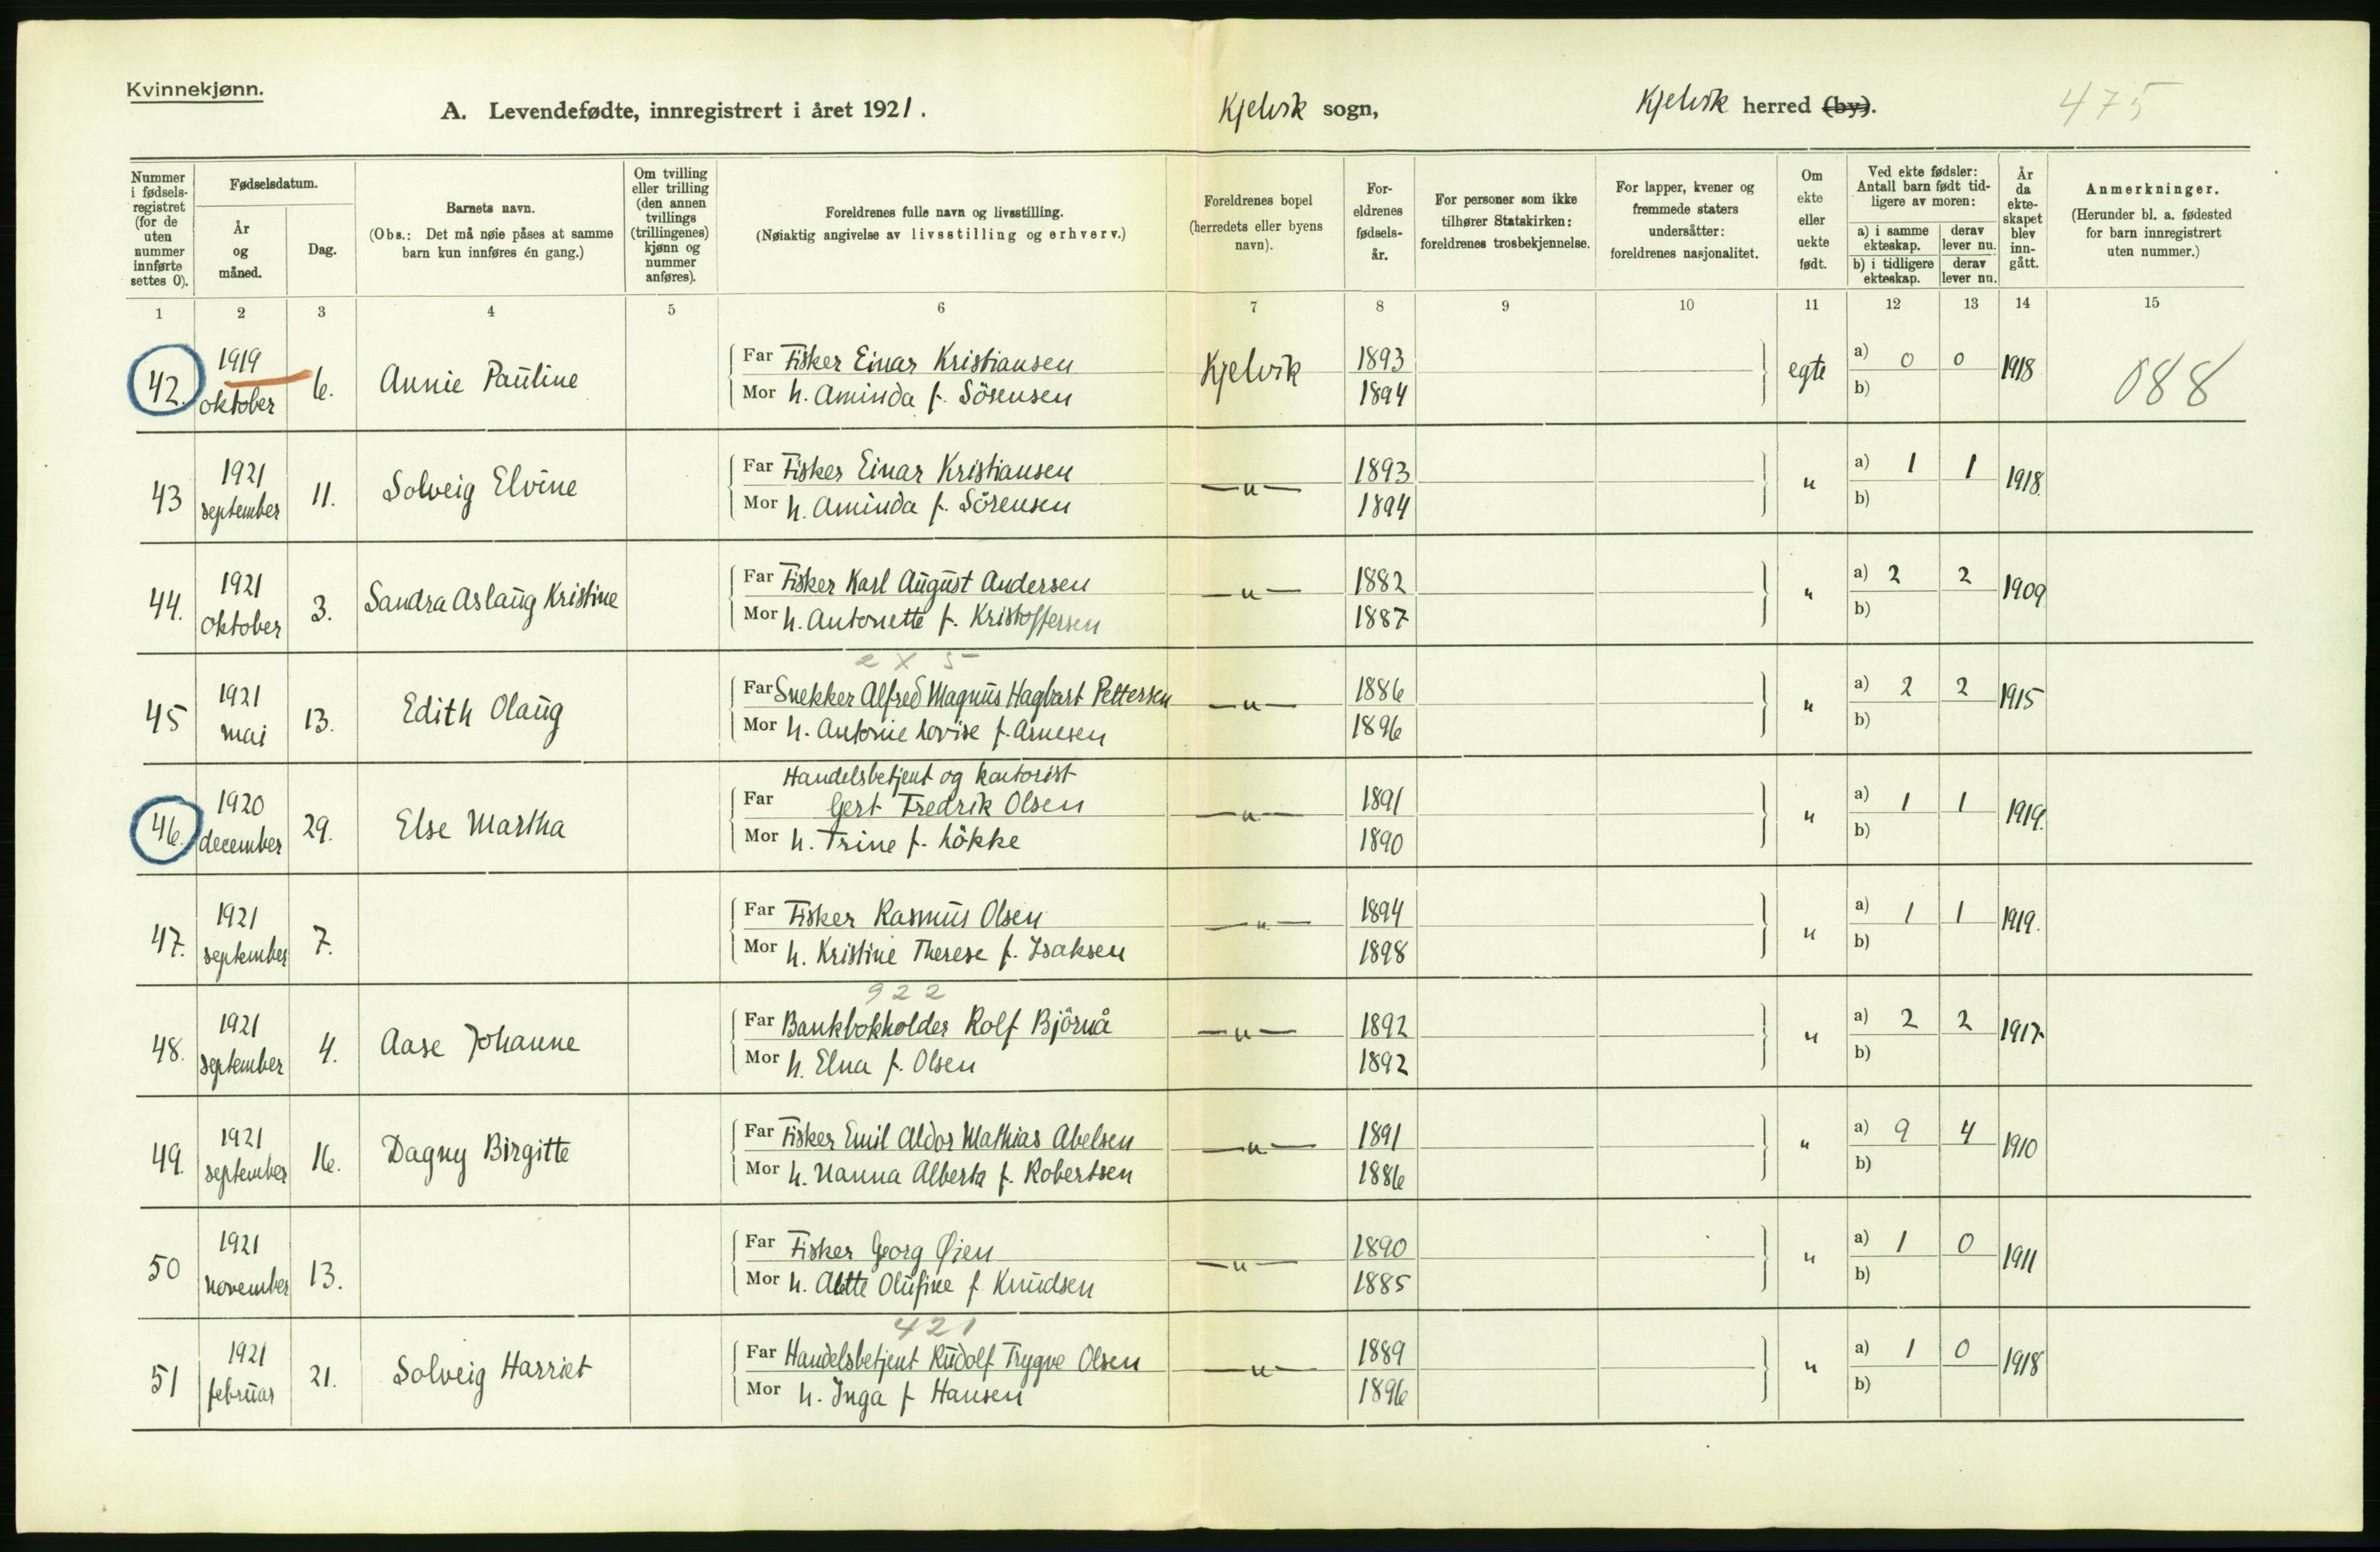 Kvinnekjønn.
A. Levendefødte, innregistrert i året 1921.
Kjelvik sogn,
Kjelvik herred (by).
475
Nummer i fødsels-registret (for de uten nummer innførte settes 0).
Fødselsdatum.
År og måned.
Dag.
Barnets navn.
(Obs.: Det må nøie påses at samme barn kun innføres én gang.)
Om tvilling eller trilling (den annen tvillings (trillingenes) kjønn og nummer anføres).
Foreldrenes fulle navn og livsstilling.
(Nøiaktig angivelse av livsstilling og erhverv.)
Foreldrenes bopel (herredets eller byens navn).
For-eldrenes fødsels-år.
For personer som ikke tilhører Statskirken: foreldrenes trosbekjennelse.
For lapper, kvener og fremmede staters undersåtter: foreldrenes nasjonalitet.
Om ekte eller uekte født.
Ved ekte fødsler: Antall barn født tid-ligere av moren:
a) i samme ekteskap.
derav lever nu.
b) i tidligere ekteskap.
derav lever nu.
År da ekte-skapet blev inn-gått.
Anmerkninger.
(Herunder bl. a. fødested for barn innregistrert uten nummer.)
1 2 3 4 5 6 7 8 9 10 11 12 13 14 15
42. 1919 oktober 6. Annie Pauline
Far Fisker Einar Kristiansen Kjelvik 1893 egte a) 0 0 1918 088
Mor h. Aminda f. Sörensen 1894 b)
43 1921 september 11. Solveig Elvine
Far Fisker Einar Kristiansen —"— 1893 " a) 1 1 1918.
Mor h. Aminda f. Sörensen 1894 b)
44. 1921 oktober 3. Sandra Aslaug Kristine
Far Fisker Karl August Andersen —"— 1882 " a) 2 2 1909
Mor h. Antonette f. Kristoffersen 1887 b)
2 x 5
45 1921 mai 13. Edith Olaug
Far Snekker Alfred Magnus Hagbart Pettersen —"— 1886 " a) 2 2 1915
Mor h. Antonie Lovise f. Arnesen 1896 b)
Handelsbetjent og kontorist
46. 1920 december 29. Else Martha
Far Gert Fredrik Olsen —"— 1891 " a) 1 1 1919.
Mor h. Trine f. Lökke 1890 b)
47. 1921 september 7.
Far Fisker Rasmus Olsen —"— 1894 " a) 1 1 1919.
Mor h. Kristine Therese f. Isaksen 1898 b)
922
48. 1921 september 4. Aase Johanne
Far Bankbokholder Rolf Björnå —"— 1892 " a) 2 2 1917
Mor h. Elna f. Olsen 1892 b)
49. 1921 september 16. Dagny Birgitte
Far Fisker Emil Aldor Mathias Abelsen —"— 1891 " a) 9 4 1910
Mor h. Nanna Alberta f. Robertsen 1886 b)
50 1921 november 13.
Far Fisker Georg Øien —"— 1890 " a) 1 0 1911
Mor h. Alette Olufine f Knudsen 1885 b)
421
51 1921 februar 21. Solveig Harriet
Far Handelsbetjent Rudolf Trygve Olsen —"— 1889 " a) 1 0 1918
Mor h. Inga f Hansen 1896 b)